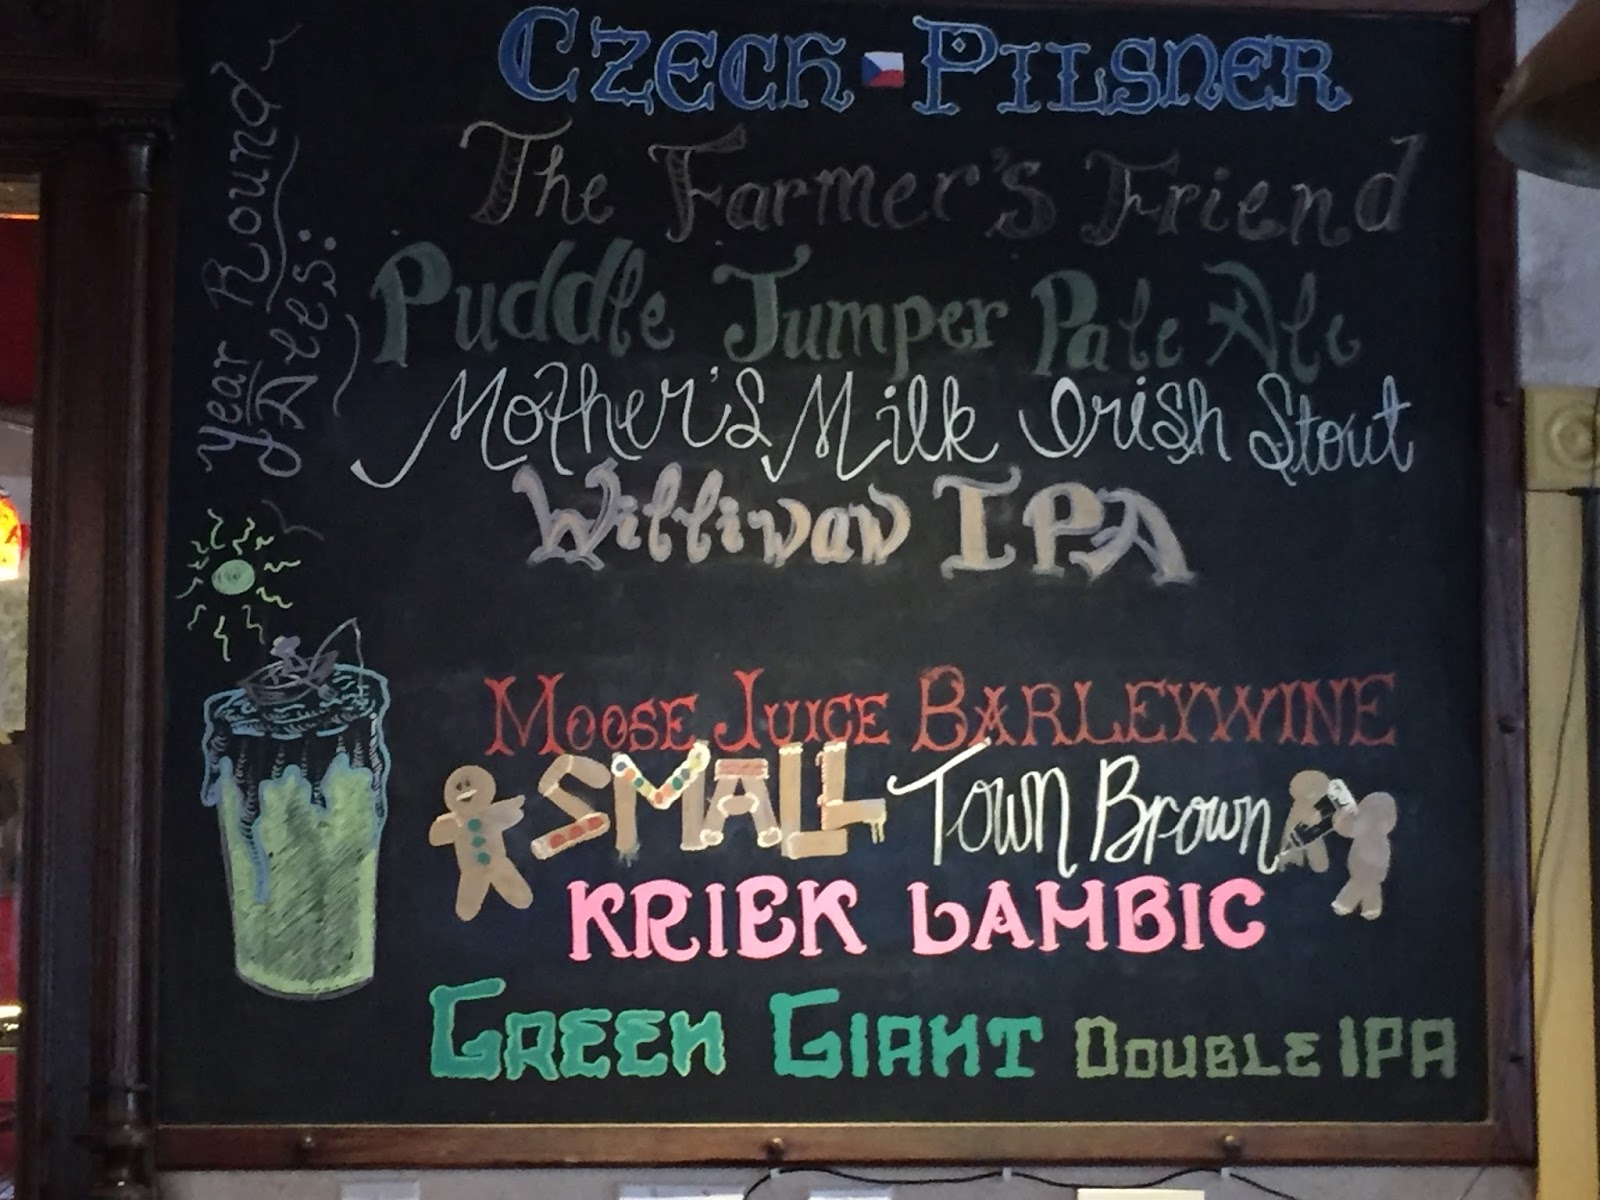 Year Round
Ales:
CZECH PILSNER
The Farmer's Friend
Puddle Jumper Pale Ale
Mother's Milk Irish Stout
Williwaw IPA
MOOSE JUICE BARLEYWINE
SMALL Town Brown
KRIEK LAMBIC
GREEN GIANT DOUBLE IPA